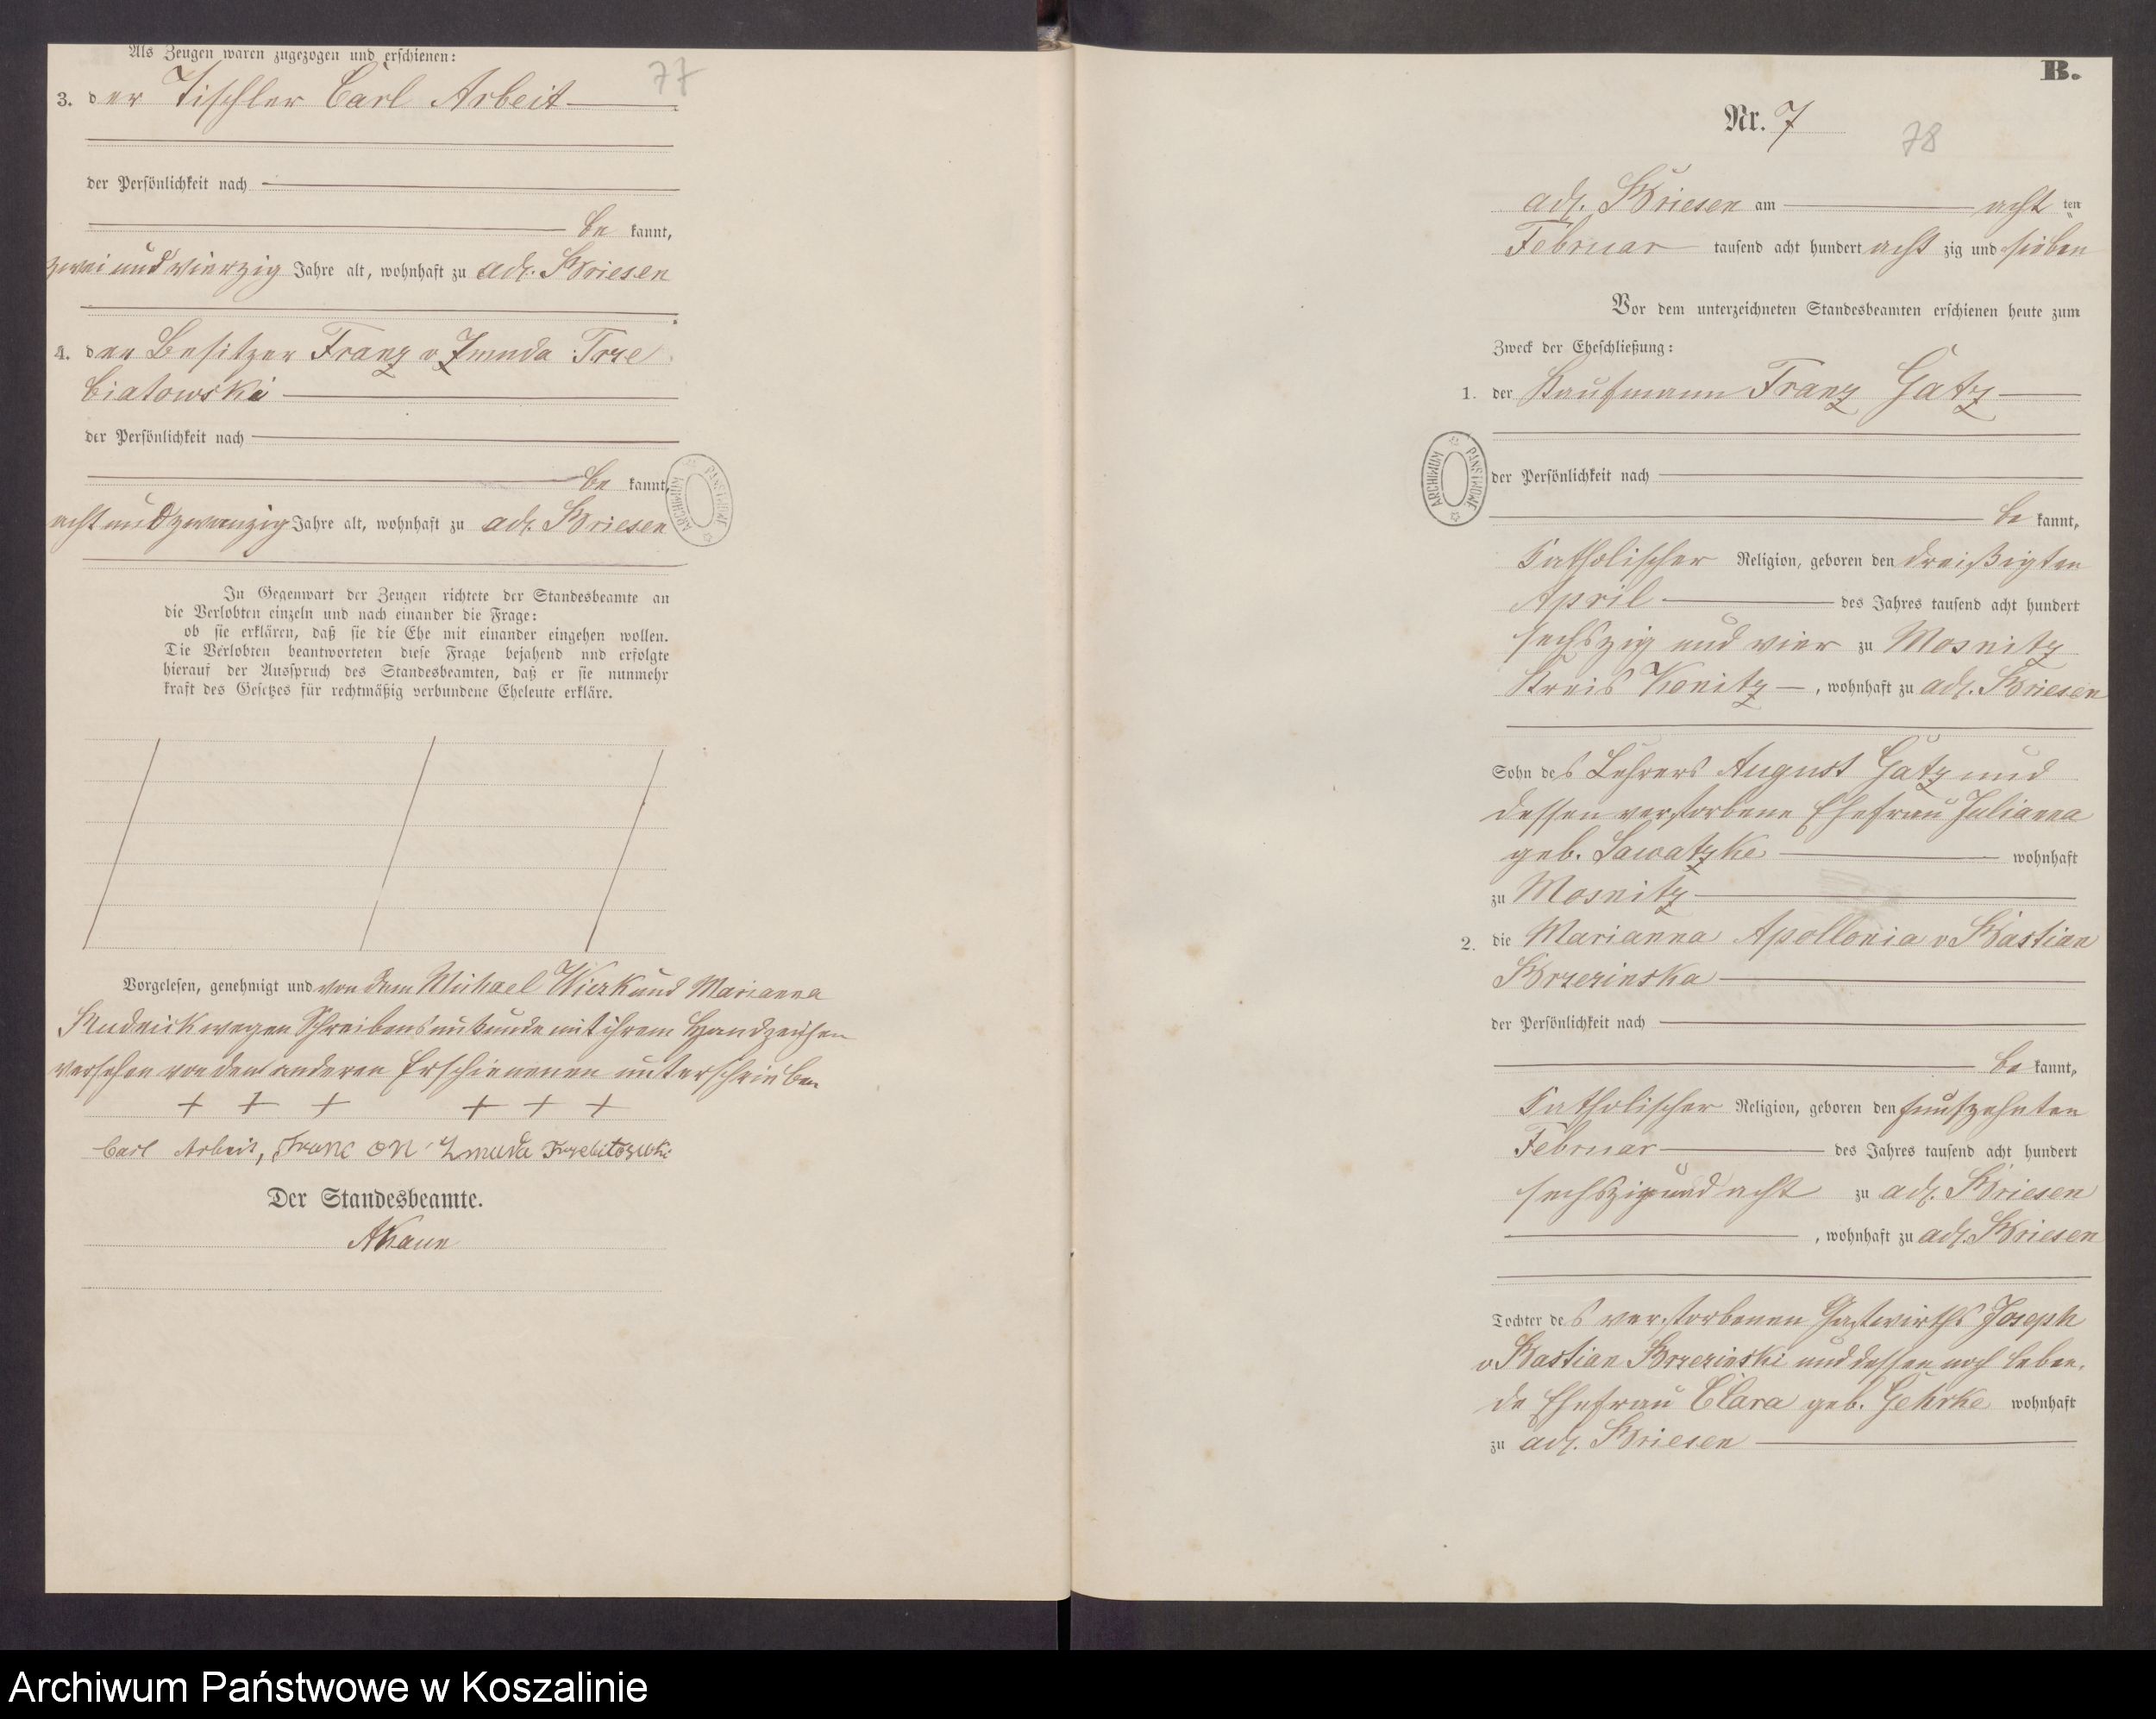 Als Zeugen waren zugezogen und erschienen:
77
3. der Tischler Carl Arbeit
der Persönlichkeit nach
be kannt,
zwei und vierzig Jahre alt, wohnhaft zu adl. Briesen
4. der Besitzer Franz v Zmuda Trze
biatowski
der Persönlichkeit nach
be kannt,
acht und zwanzig Jahre alt, wohnhaft zu adl. Briesen
ARCHIWUM PAŃSTWOWE
In Gegenwart der Zeugen richtete der Standesbeamte an
die Verlobten einzeln und nach einander die Frage:
ob sie erklären, daß sie die Ehe mit einander eingehen wollen.
Die Verlobten beantworteten diese Frage bejahend und erfolgte
hierauf der Ausspruch des Standesbeamten, daß er sie nunmehr
kraft des Gesetzes für rechtmäßig verbundene Eheleute erkläre.
Vorgelesen, genehmigt und von dem Michael Wierk und Marianna
Rudnick wegen Schreibensunkunde mit ihrem Handzeichen
versehen von den anderen Erschienenen unterschrieben
+ + + + + +
Carl Arbeit, Franc on Zmuda Trzebitowski
Der Standesbeamte.
B.
Nr. 7
78
adl. Briesen am acht ten
Februar tausend acht hundert acht zig und sieben
Vor dem unterzeichneten Standesbeamten erschienen heute zum
Zweck der Eheschließung:
1. der Kaufmann Franz Gatz
ARCHIWUM PAŃSTWOWE
der Persönlichkeit nach
be kannt,
katholischer Religion, geboren den dreißigten
April des Jahres tausend acht hundert
sechszig und vier zu Mosnitz
Kreis Konitz, wohnhaft zu adl. Briesen
Sohn des Lehrers August Gatz und
dessen verstorbene Ehefrau Julianna
geb. Sawatzke wohnhaft
zu Mosnitz
2. die Marianna Apollonia v Bastian
Brzezinska
der Persönlichkeit nach
be kannt,
katholischer Religion, geboren den funfzehnten
Februar des Jahres tausend acht hundert
sechszig und acht zu adl. Briesen
, wohnhaft zu adl. Briesen
Tochter des verstorbenen Gastwirths Joseph
v Bastian Brzezinski und dessen noch leben,
de Ehefrau Clara geb. Gehrke wohnhaft
zu adl. Briesen
Archiwum Państwowe w Koszalinie